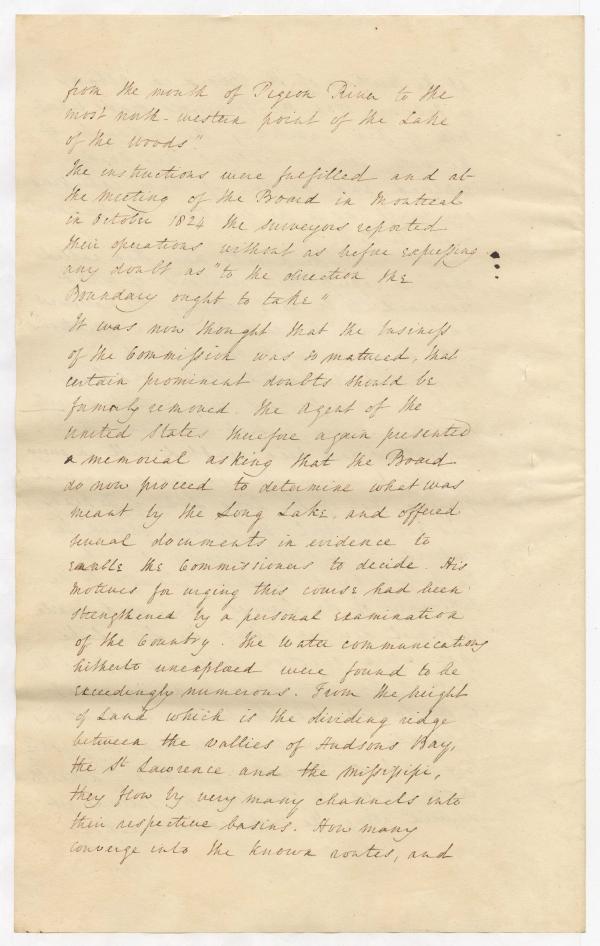 from the mouth of Pigeon River to the
most north-western point of the Lake
of the woods"
The instructions were fulfilled and at
the meeting of the Board in Montreal
in October 1824 the surveyors reported
their operations without as before expressing
any doubt as "to the direction the
Boundary ought to take"
It was now thought that the business
of the Commission was so matured, that
certain prominent doubts should be
formaly removed. The Agent of the
United States therefore again presented
a memorial asking that the Board
do now proceed to determine what was
meant by the Long Lake, and offered
several documents in evidence to
enable the Commissioners to decide. His
motives for urging this course had been
strengthened by a personal examination
of the Country. The water communications
hitherto unexplored were found to be
exceedingly numerous. From the height
of Land which is the dividing ridge
between the vallies of Hudsons Bay,
the St Lawrence and the Missisipi,
they flow by very many channels into
their respective basins. How many
converge into the known routes, and